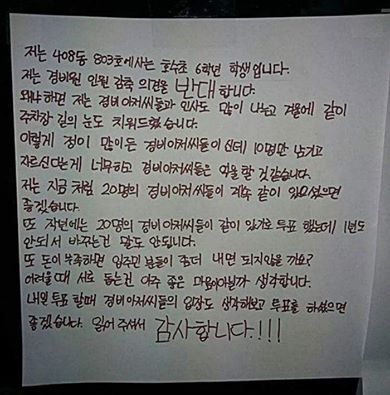 저는 408동 803호에사는 호수초 6학년 학생입니다.
저는 경비원 인원 감축 의견을 반대 합니다.
왜냐하면 저는 경비아저씨들과 인사도 많이 나누고 겨울에 같이
주차장 길의 눈도 치워드렸습니다.
이렇게 정이 많이든 경비아저씨들이 신데 10명만 남기고
자르신다는게 너무하고 경비아저씨들은 억울 할 것같습니다.
저는 지금 처럼 20명의 경비아저씨들이 계속 같이 있으셨으면
좋겠습니다.
또 작년에는 20명의 경비아저씨들이 같이 있기로 투표 했는데 1년도
안되서 바꾸는건 말도 안됩니다.
또 돈이 부족하면 입주민 분들이 좀더 내면 되지않을까요?
어려울 때 서로 돕는건 아주 좋은 마음이아닐까 생각합니다.
내일 투표 할때 경비아저씨들의 입장도 생각해보고 투표를 하셨으면
좋겠습니다. 읽어 주셔서 감사합니다.!!!